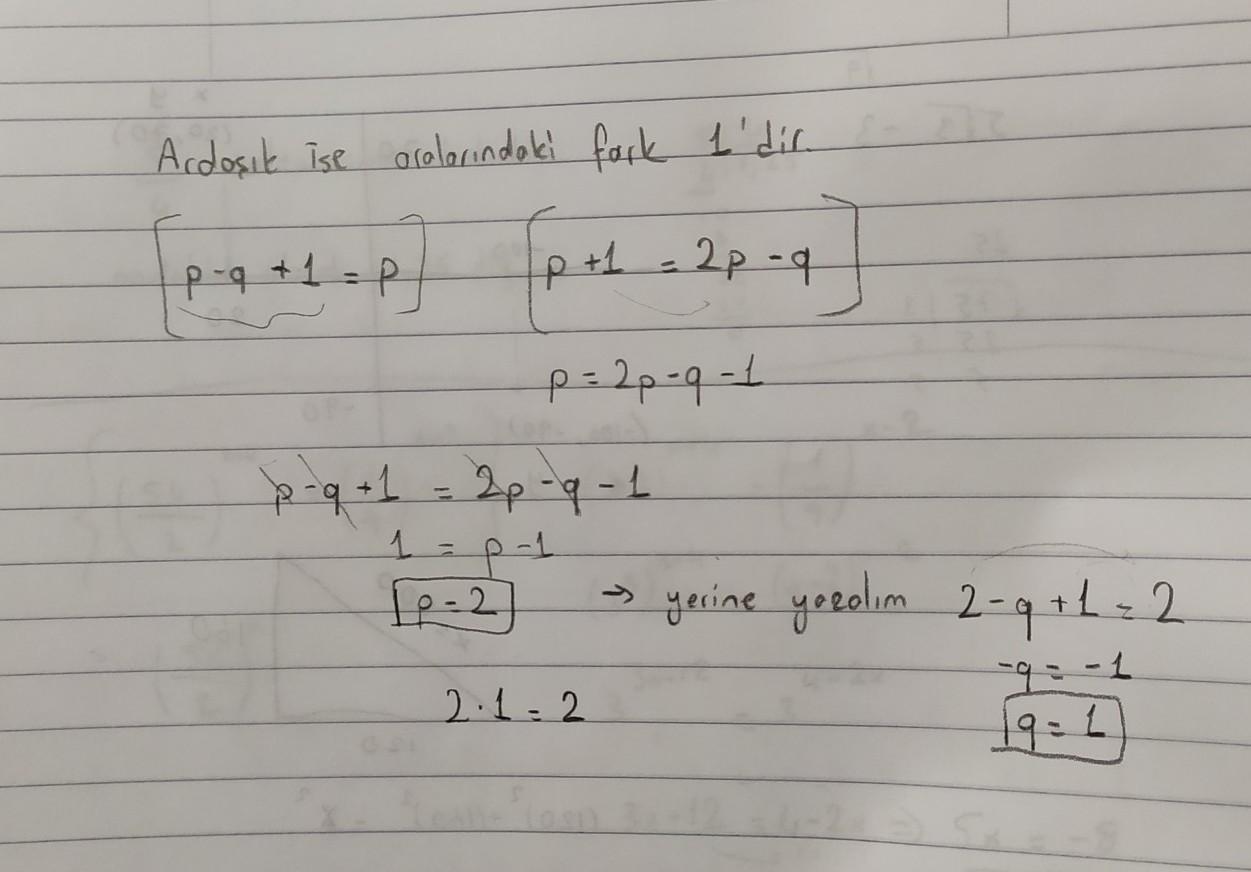 Ardışık ise aralarındaki fark 1'dir.
[p-q+1=p] [p+1=2p-q]
p=2p-q-1
p-q+1=2p-q-1
1=p-1
p=2 → yerine yazalım 2-q+1=2
-q=-1
2·1=2 q=1